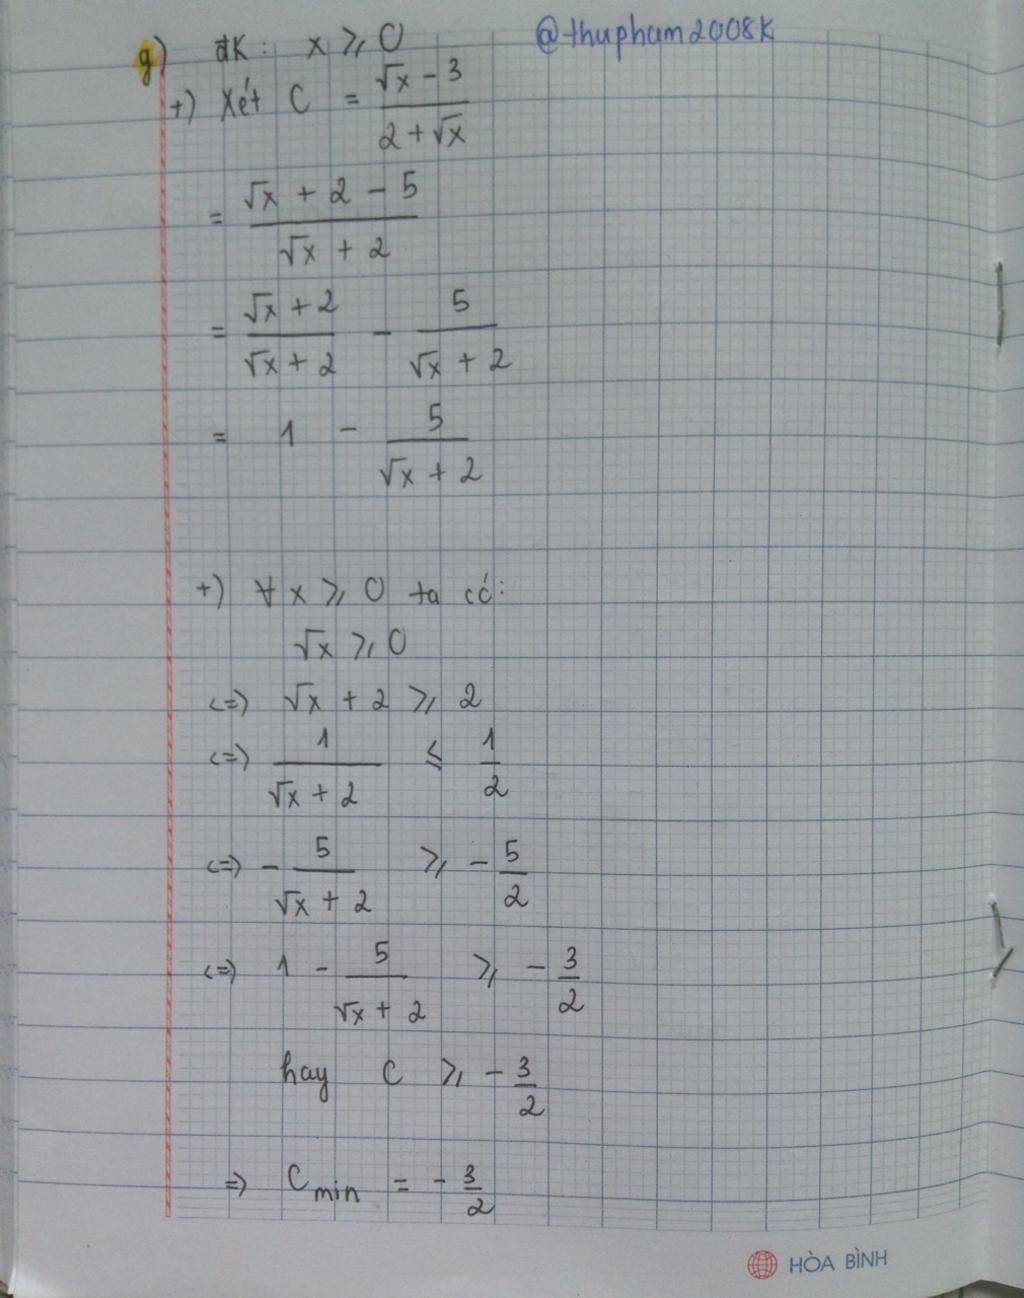 g) đK: x ≥ 0 @thupham2008k
+) Xét C = (√x - 3)/(2 + √x)
= (√x + 2 - 5)/(√x + 2)
= (√x + 2)/(√x + 2) - 5/(√x + 2)
= 1 - 5/(√x + 2)
+) ∀ x ≥ 0 ta có:
√x ≥ 0
<=> √x + 2 ≥ 2
<=> 1/(√x + 2) ≤ 1/2
<=> - 5/(√x + 2) ≥ - 5/2
<=> 1 - 5/(√x + 2) ≥ - 3/2
hay C ≥ - 3/2
=> Cmin = - 3/2
HÒA BÌNH